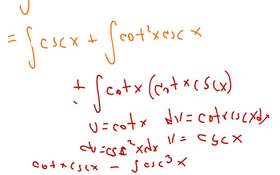 = ∫ cscx + ∫ cot²x cscx
+ ∫ cotx (cotx cscx)
u = cotx dv = cotx cscx dx
du = csc²x dx v = cscx
cotx cscx - ∫ csc³x